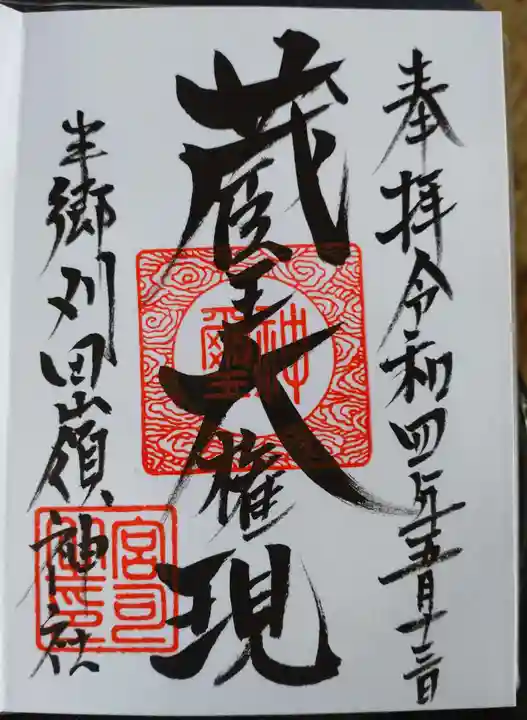 奉拝令和四年五月十三日
蔵王大権現
神璽
半郷刈田嶺神社
宮司之印